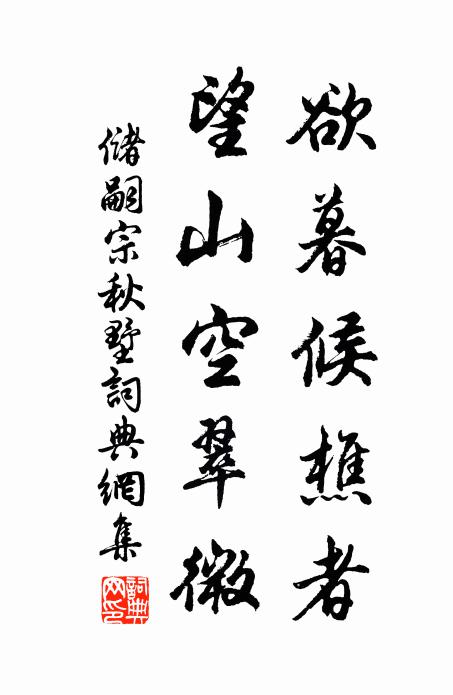 欲暮候樵者
望山空翠微
儲嗣宗秋墅詞典網集